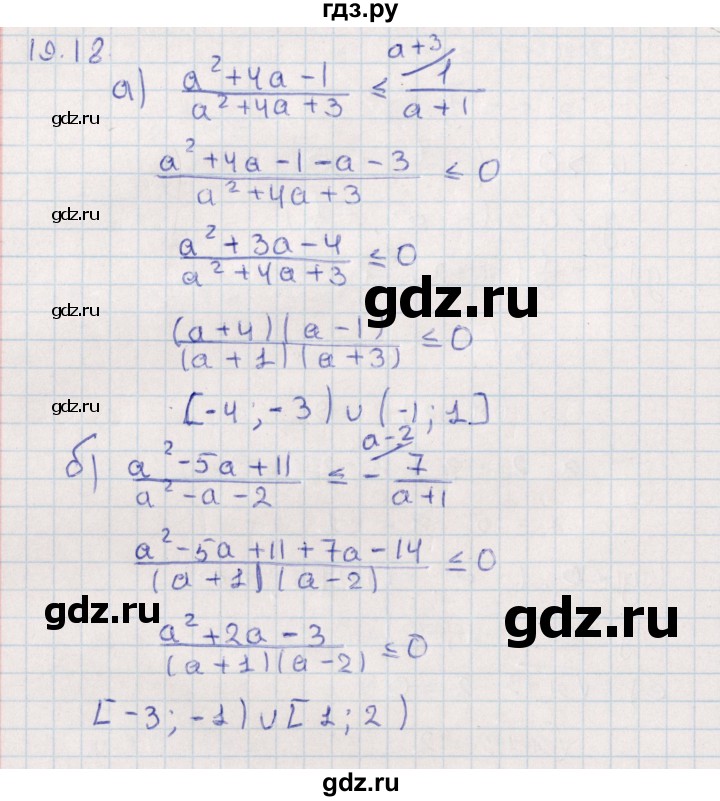 гдз.ру
19.18.
а) (a² + 4a - 1)/(a² + 4a + 3) ≤ 1/(a + 1) a+3
gdz.ru
(a² + 4a - 1 - a - 3)/(a² + 4a + 3) ≤ 0
gdz.ru
(a² + 3a - 4)/(a² + 4a + 3) ≤ 0
gdz.ru
gdz.ru
((a + 4)(a - 1))/((a + 1)(a + 3)) ≤ 0
[-4; -3) ∪ (-1; 1]
б) (a² - 5a + 11)/(a² - a - 2) ≤ - 7/(a + 1) a-2
gdz.ru
(a² - 5a + 11 + 7a - 14)/((a + 1)(a - 2)) ≤ 0
gdz.ru
gdz.ru
(a² + 2a - 3)/((a + 1)(a - 2)) ≤ 0
[-3; -1) ∪ [1; 2)
gdz.ru
gdz.ru